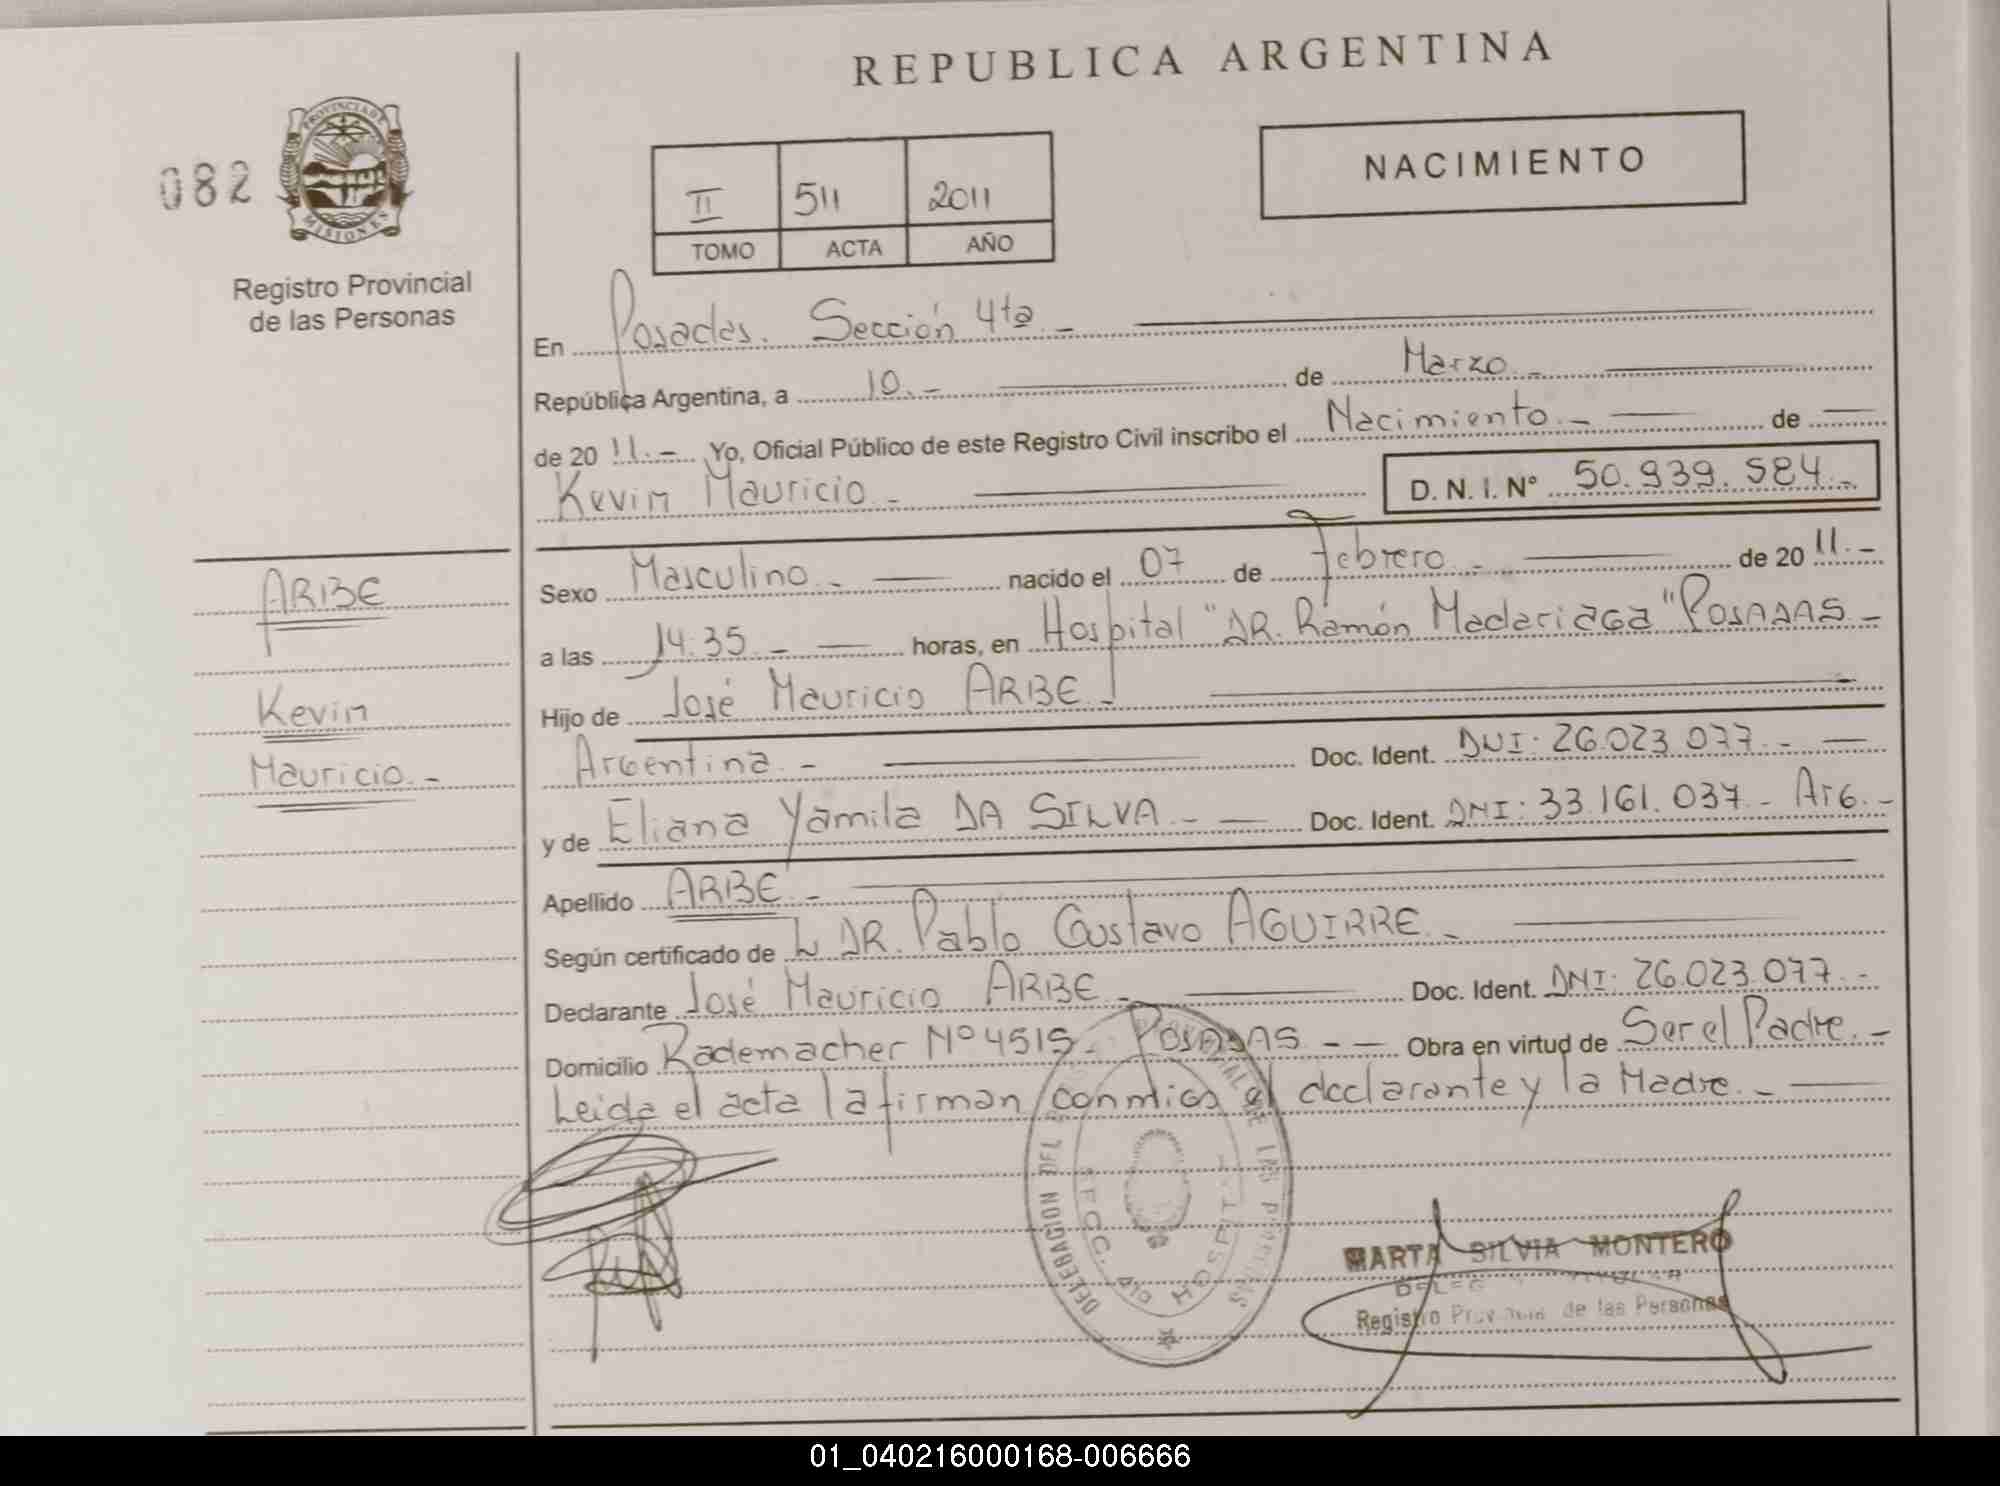 REPUBLICA ARGENTINA
082
PROVINCIA DE
MISIONES
Registro Provincial
de las Personas
NACIMIENTO
II 511 2011
TOMO ACTA AÑO
En Posadas. Sección 4ta.-
República Argentina, a 10.- de Marzo.-
de 20 11.- Yo, Oficial Público de este Registro Civil inscribo el Nacimiento.- de
Kevin Mauricio.- D. N. I. N° 50.939.584.-
ARBE
Kevin
Mauricio.-
Sexo Masculino.- nacido el 07 de Febrero.- de 20 11.-
a las 14.35.- horas, en Hospital "DR. Ramón Madariaga" POSADAS.-
Hijo de José Mauricio ARBE.-
Argentina.- Doc. Ident. DNI: 26.023.077.-
y de Eliana Yamila DA SILVA.- Doc. Ident. DNI: 33.161.037.- Arg.-
Apellido ARBE.-
Según certificado de L DR. Pablo Gustavo AGUIRRE.-
Declarante José Mauricio ARBE.- Doc. Ident. DNI: 26.023.077.-
Domicilio Rademacher Nº 4515.- POSADAS.- Obra en virtud de Ser el Padre.-
Leida el acta la firman conmigo el declarante y la Madre.-
DELEGACION DEL DE LAS PERSONAS
SECC. 4ta HOSPIT
MARTA SILVIA MONTERO
Registro Provincial de las Personas
01_040216000168-006666